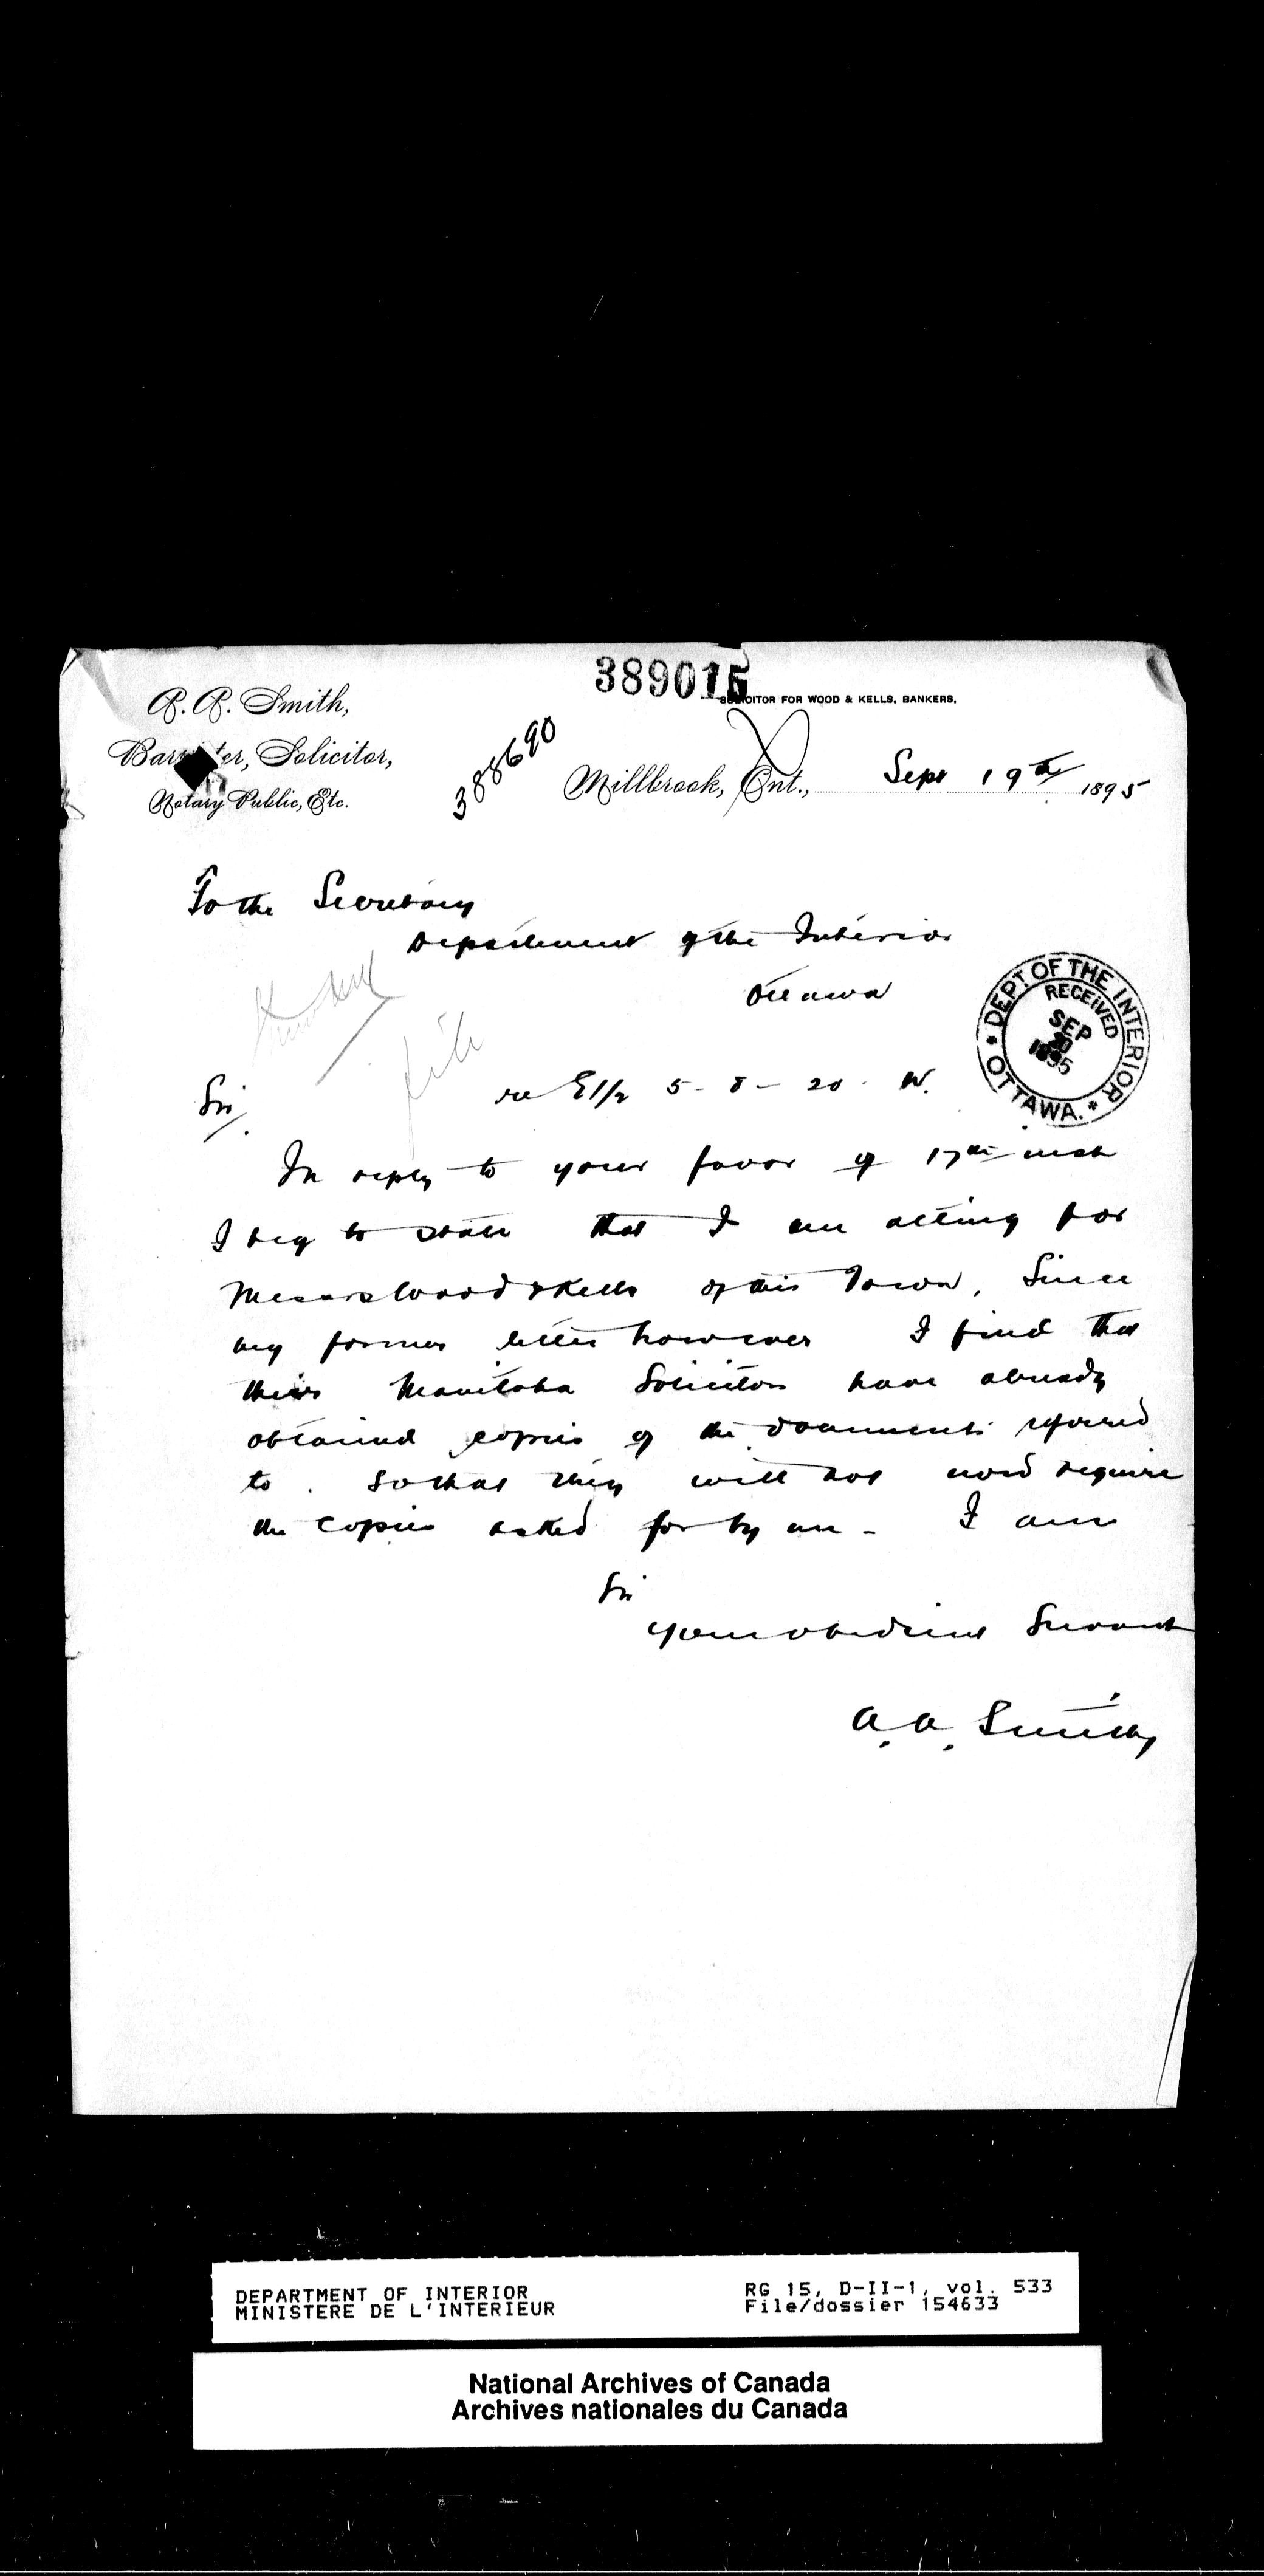 389015
SOLICITOR FOR WOOD & KELLS, BANKERS.
A. A. Smith,
Barrister, Solicitor,
Notary Public, Etc.
388690
Millbrook, Ont., Sept 19th 1895
To the Secretary
Department of the Interior
Ottawa
file
DEPT OF THE INTERIOR
RECEIVED
SEP
20
1895
* OTTAWA. *
re E1/2 5 - 8 - 20 - W.
Sir
In reply to your favor of 17th inst
I beg to state that I am acting for
Messrs Wood & Kells of this Town, Since
my former letter however I find that
their Manitoba Solicitors have already
obtained copies of the documents referred
to . So that they will not now require
the copies asked for by me - I am
Sir
your obedient Servant
A. A. Smith
DEPARTMENT OF INTERIOR
MINISTERE DE L'INTERIEUR
RG 15, D-II-1, vol. 533
File/dossier 154633
National Archives of Canada
Archives nationales du Canada